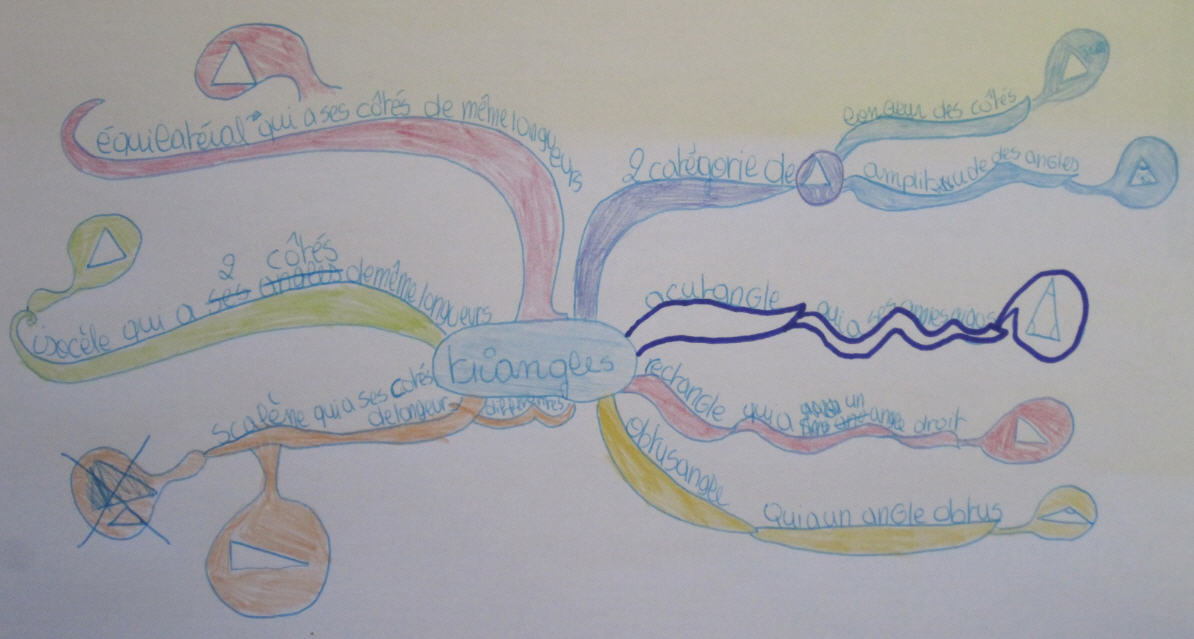 triangles
2 catégorie de
longueur des côtés
amplitude des angles
acutangle qui a ses angles aigus
rectangle qui a un angle droit
obtusangle
Qui a un angle obtus
équilatéral qui a ses côtés de même longueurs
2 côtés
isocèle qui a ses angles de même longueurs
scalène qui a ses cotés
de longeur différentes